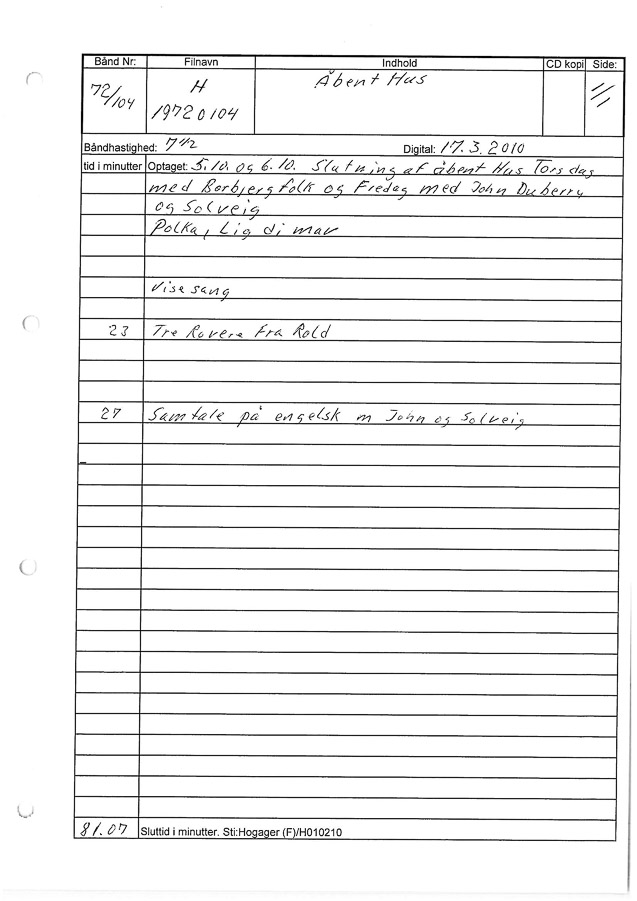 Bånd Nr: Filnavn Indhold CD kopi Side:
72/104 H Åbent Hus //
19720104
Båndhastighed: 7 1/2 Digital: 17.3.2010
tid i minutter Optaget: 5.10. og 6.10. Slutning af åbent Hus Torsdag
med Borbjergfolk og Fredag med John Duberry
og Solveig
Polka, Lig di mav
Visesang
23 Tre Røvere Fra Rold
27 Samtale på engelsk m John og Solveig
81.07 Sluttid i minutter. Sti:Hogager (F)/H010210